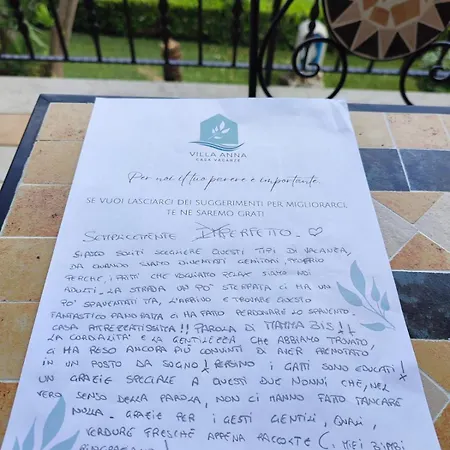 VILLA ANNA
CASA VACANZE
Per noi il tuo parere è importante.
SE VUOI LASCIARCI DEI SUGGERIMENTI PER MIGLIORARCI,
TE NE SAREMO GRATI
SEMPLICEMENTE PERFETTO. ♡
SIAMO SOLITI SCEGLIERE QUESTI TIPI DI VACANZA,
DA QUANDO SIAMO DIVENTATI GENITORI, PROPRIO
PERCHÉ, I PATTI CHE VOGLIAMO RELAX SIAMO NOI
ADULTI. LA STRADA UN PO' STERRATA CI HA UN
PO' SPAVENTATI MA, L'ARRIVO E TROVARE QUESTO
FANTASTICO PANORAMA CI HA FATTO PERDONARE LO SPAVENTO.
CASA ATTREZZATISSIMA!! PAROLA DI MAMMA BIS!!
LA CORDIALITÀ E LA GENTILEZZA CHE ABBIAMO TROVATO,
CI HA RESO ANCORA PIÙ CONVINTI DI AVER PRENOTATO
IN UN POSTO DA SOGNO! PERSINO I GATTI SONO EDUCATI!
UN GRAZIE SPECIALE A QUESTI DUE NONNI CHE, NEL
VERO SENSO DELLA PAROLA, NON CI HANNO FATTO MANCARE
NULLA. GRAZIE PER I GESTI GENTILI, QUALI,
VERDURE FRESCHE APPENA RACCOLTE (I MIEI BIMBI
RINGRAZIANO)